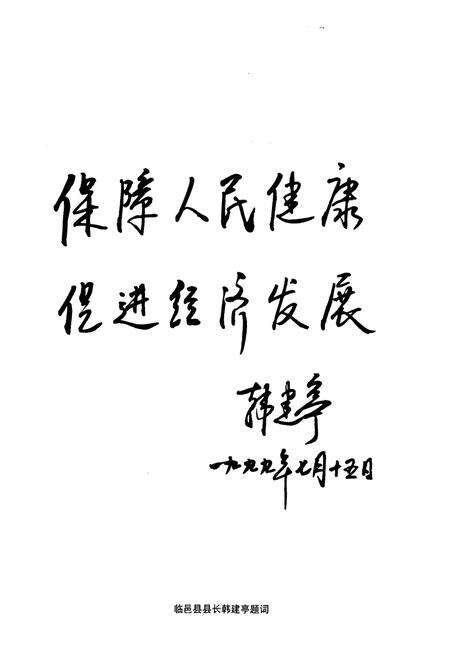 保障人民健康
促进经济发展
韩建亭
一九九九年七月十五日
临邑县县长韩建亭题词